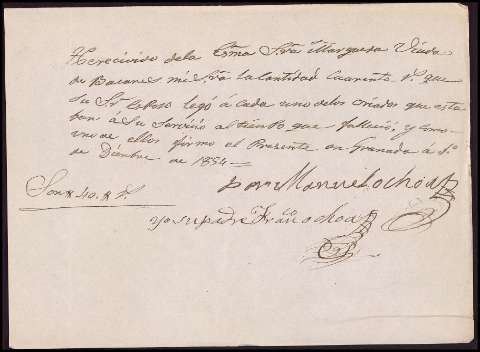 He recivido de la Exma Sra Marquesa Viuda
de Bacares mi Sra la cantidad cuarenta rs que
su Sr Esposo legó á cada uno de los criados que esta
ban á su servicio al tiempo que fallecio, y como
uno de ellos firmo el Presente en Granada á 1º
de Dicıembre de 1854
Son # 40 # rs
por Manuel ochoa
yo su padre Franco ochoa